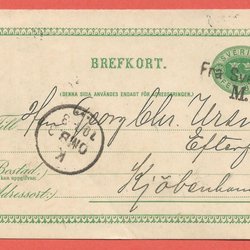 BREFKORT.
(DENNA SIDA ANVÄNDES ENDAST FÖR ADRESSERINGEN.)
SVERIGE
Fr
Till Herr Georg Chr. Ursin
Efterf
Bostad:
(kan uppgifvas)
Kjöbenhavn
Adressort:
K
OMB. 3